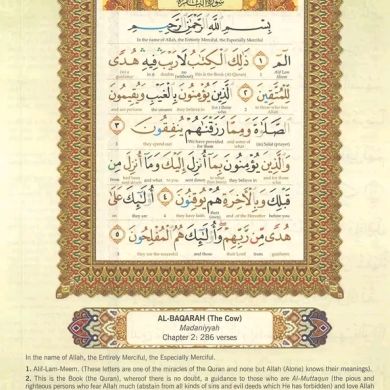 بِسْمِ اللَّهِ الرَّحْمَٰنِ الرَّحِيمِ
In the name of Allah, the Entirely Merciful, the Especially Merciful
الٓمٓ ١ ذَٰلِكَ ٱلْكِتَٰبُ لَا رَيْبَ فِيهِ هُدًى
لِّلْمُتَّقِينَ ٢ ٱلَّذِينَ يُؤْمِنُونَ بِٱلْغَيْبِ وَيُقِيمُونَ
ٱلصَّلَوٰةَ وَمِمَّا رَزَقْنَٰهُمْ يُنفِقُونَ ٣
they spend out
وَٱلَّذِينَ يُؤْمِنُونَ بِمَآ أُنزِلَ إِلَيْكَ وَمَآ أُنزِلَ مِن
قَبْلِكَ وَبِٱلْءَاخِرَةِ هُمْ يُوقِنُونَ ٤ أُو۟لَٰٓئِكَ عَلَىٰ
هُدًى مِّن رَّبِّهِمْ وَأُو۟لَٰٓئِكَ هُمُ ٱلْمُفْلِحُونَ ٥
AL-BAQARAH (The Cow)
Madaniyyah
Chapter 2: 286 verses
In the name of Allah, the Entirely Merciful, the Especially Merciful.
1. Alif-Lam-Meem. (These letters are one of the miracles of the Quran and none but Allah (Alone) knows their meanings).
2. This is the Book (the Quran), whereof there is no doubt, a guidance to those who are Al-Muttaqun (the pious and
righteous persons who fear Allah much (abstain from all kinds of sins and evil deeds which He has forbidden) and love Allah